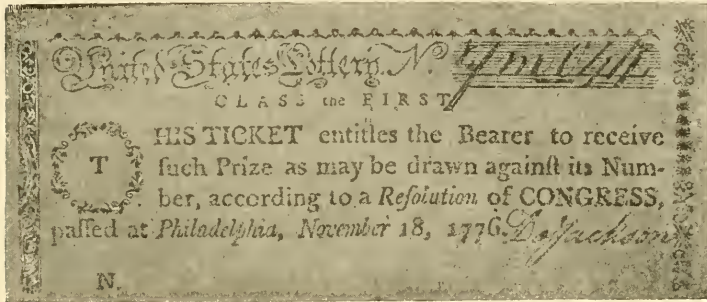 United States Lottery. No.
CLASS the FIRST
THIS TICKET entitles the Bearer to receive
ſuch Prize as may be drawn againſt its Num-
ber, according to a Reſolution of CONGRESS,
paſſed at Philadelphia, November 18, 1776. Jackson
N.